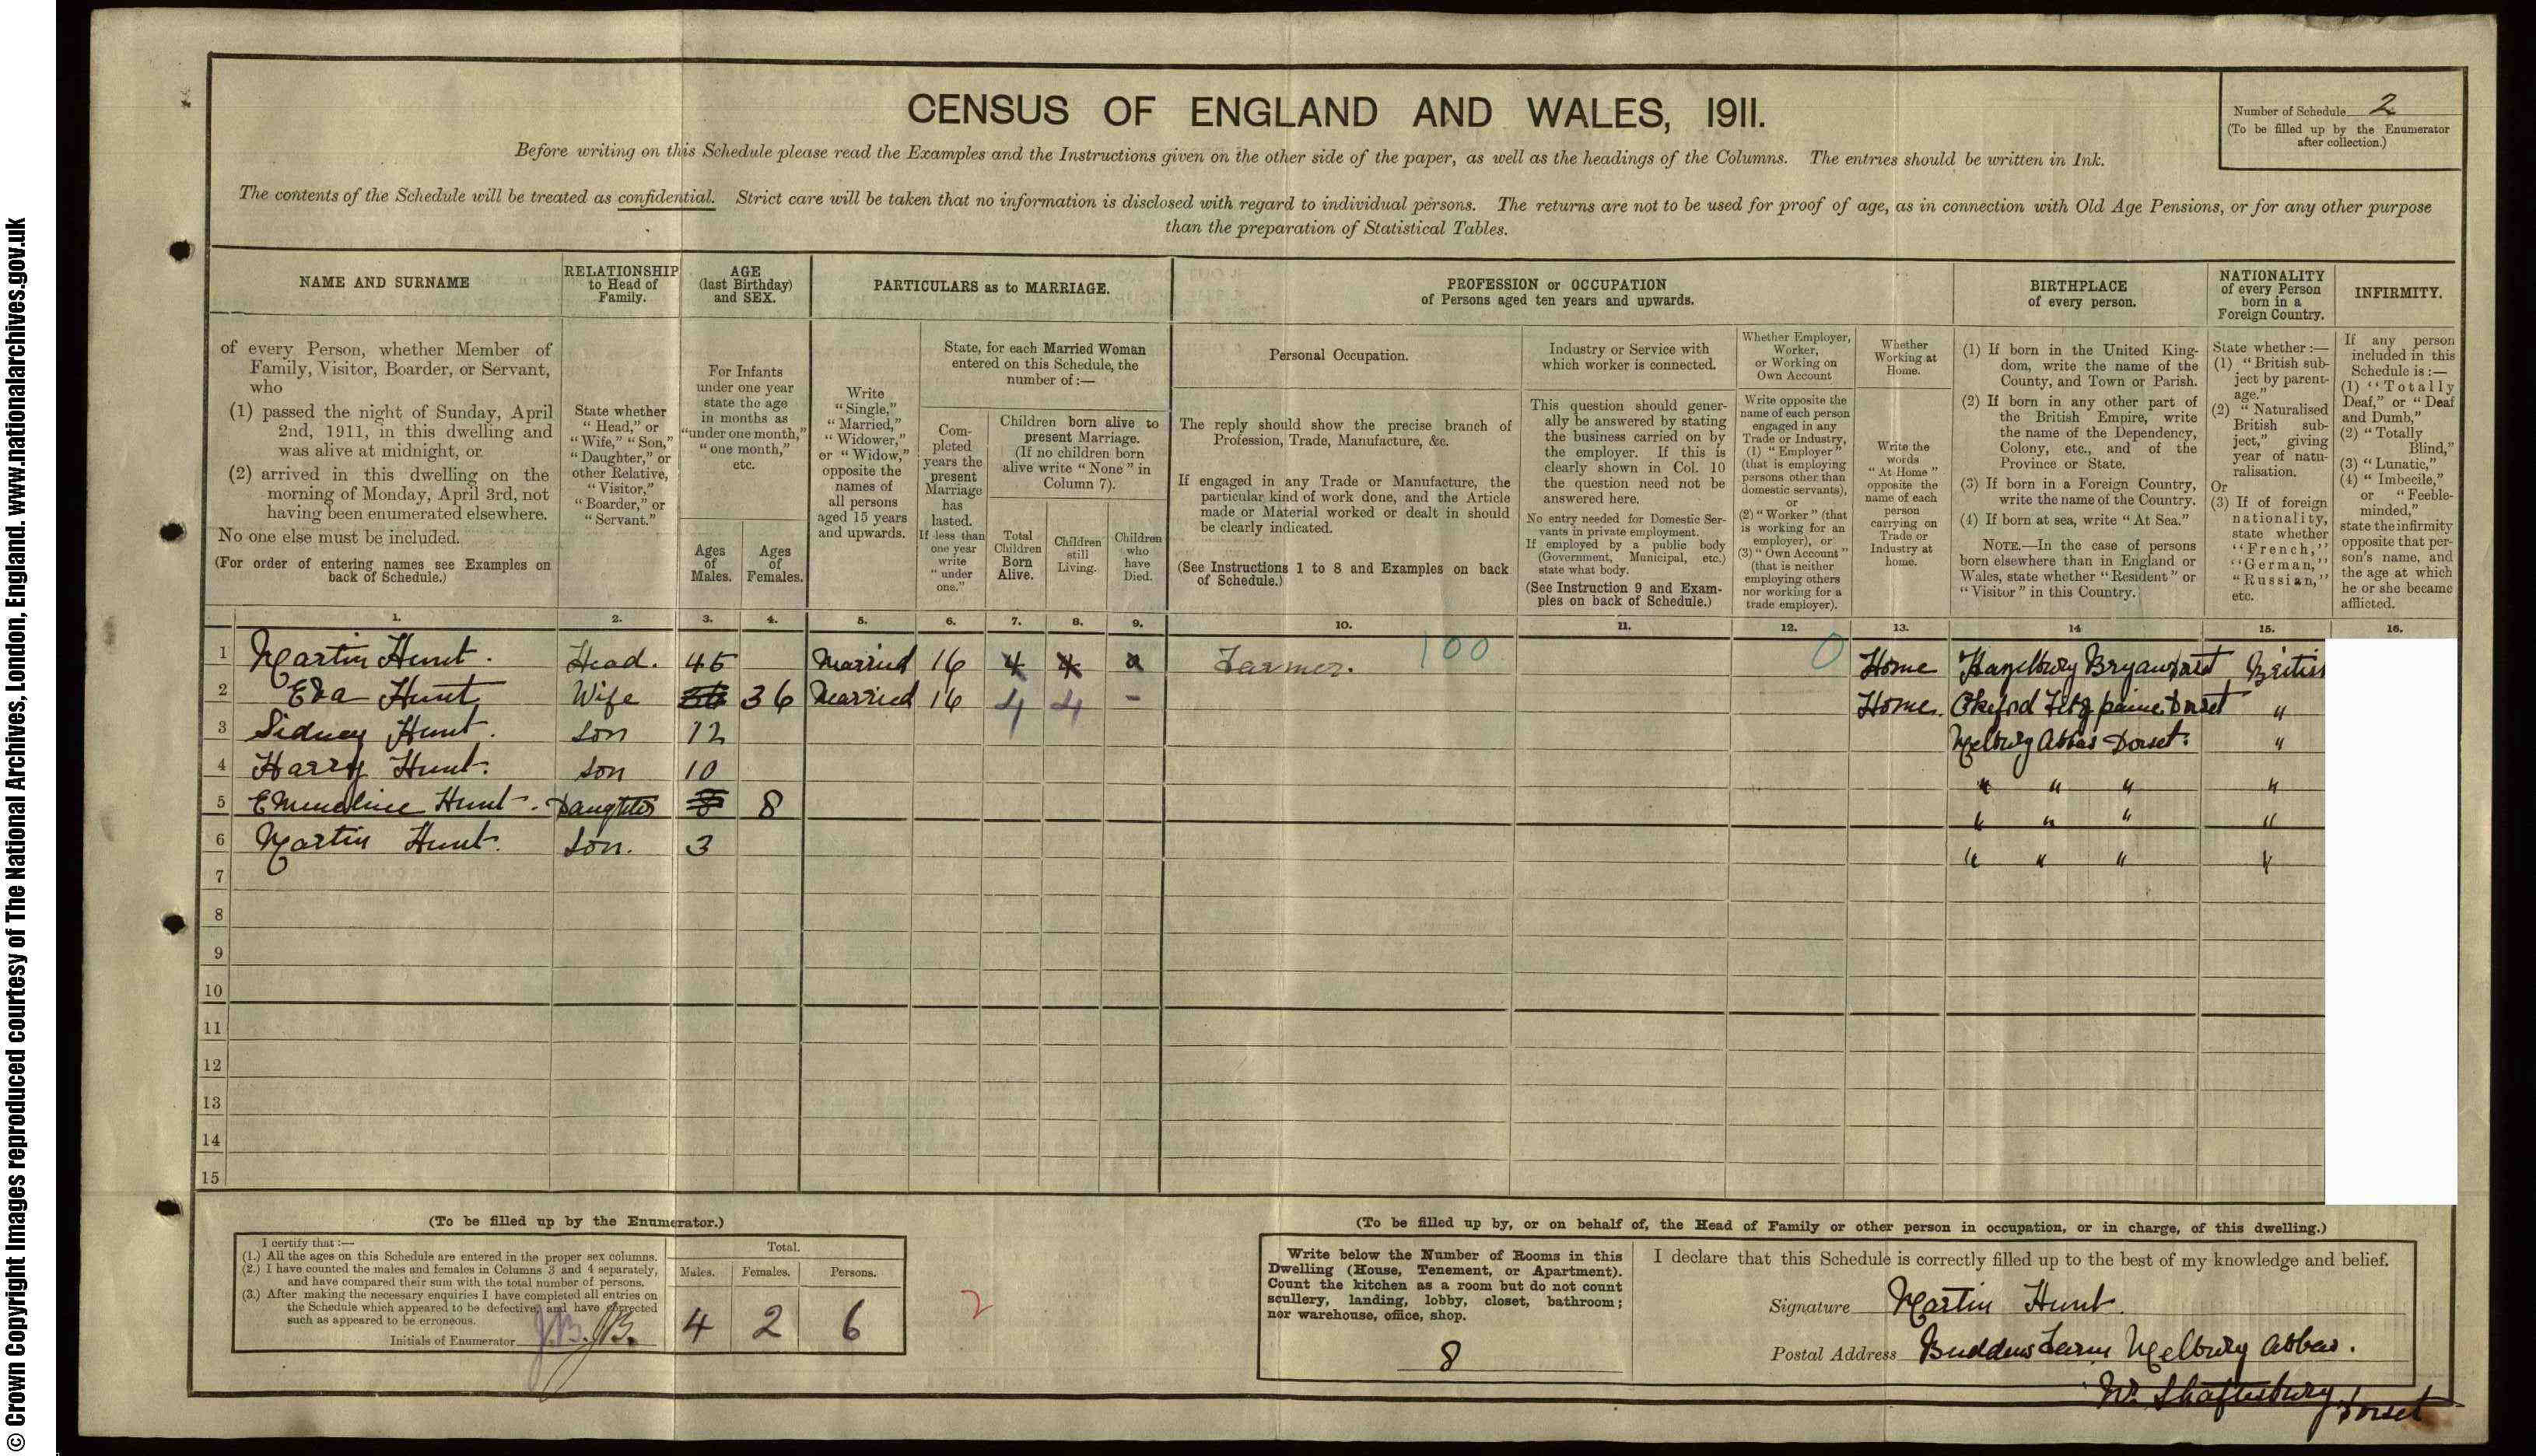 CENSUS OF ENGLAND AND WALES, 1911.
Number of Schedule 2
(To be filled up by the Enumerator
after collection.)
Before writing on this Schedule please read the Examples and the Instructions given on the other side of the paper, as well as the headings of the Columns. The entries should be written in Ink.
The contents of the Schedule will be treated as confidential. Strict care will be taken that no information is disclosed with regard to individual persons. The returns are not to be used for proof of age, as in connection with Old Age Pensions, or for any other purpose
than the preparation of Statistical Tables.
NAME AND SURNAME
of every Person, whether Member of
Family, Visitor, Boarder, or Servant,
who
(1) passed the night of Sunday, April
2nd, 1911, in this dwelling and
was alive at midnight, or
(2) arrived in this dwelling on the
morning of Monday, April 3rd, not
having been enumerated elsewhere.
No one else must be included.
(For order of entering names see Examples on
back of Schedule.)
RELATIONSHIP
to Head of
Family.
State whether
"Head," or
"Wife," "Son,"
"Daughter," or
other Relative,
"Visitor,"
"Boarder," or
"Servant."
AGE
(last Birthday)
and SEX.
For Infants
under one year
state the age
in months as
"under one month,"
"one month,"
etc.
Ages
of
Males.
Ages
of
Females.
PARTICULARS as to MARRIAGE.
Write
"Single,"
"Married,"
"Widower,"
or "Widow,"
opposite the
names of
all persons
aged 15 years
and upwards.
State, for each Married Woman
entered on this Schedule, the
number of:—
Com-
pleted
years the
present
Marriage
has
lasted.
If less than
one year
write
"under
one."
Children born alive to
present Marriage.
(If no children born
alive write "None" in
Column 7).
Total
Children
Born
Alive.
Children
still
Living.
Children
who
have
Died.
PROFESSION or OCCUPATION
of Persons aged ten years and upwards.
Personal Occupation.
The reply should show the precise branch of
Profession, Trade, Manufacture, &c.
If engaged in any Trade or Manufacture, the
particular kind of work done, and the Article
made or Material worked or dealt in should
be clearly indicated.
(See Instructions 1 to 8 and Examples on back
of Schedule.)
Industry or Service with
which worker is connected.
This question should gener-
ally be answered by stating
the business carried on by
the employer. If this is
clearly shown in Col. 10
the question need not be
answered here.
No entry needed for Domestic Ser-
vants in private employment.
If employed by a public body
(Government, Municipal, etc.)
state what body.
(See Instruction 9 and Exam-
ples on back of Schedule.)
Whether Employer,
Worker,
or Working on
Own Account
Write opposite the
name of each person
engaged in any
Trade or Industry,
(1) "Employer"
(that is employing
persons other than
domestic servants),
or
(2) "Worker" (that
is working for an
employer), or
(3) "Own Account"
(that is neither
employing others
nor working for a
trade employer).
Whether
Working at
Home.
Write the
words
"At Home"
opposite the
name of each
person
carrying on
Trade or
Industry at
home.
BIRTHPLACE
of every person.
(1) If born in the United King-
dom, write the name of the
County, and Town or Parish.
(2) If born in any other part of
the British Empire, write
the name of the Dependency,
Colony, etc., and of the
Province or State.
(3) If born in a Foreign Country,
write the name of the Country.
(4) If born at sea, write "At Sea."
NOTE.—In the case of persons
born elsewhere than in England or
Wales, state whether "Resident" or
"Visitor" in this Country.
NATIONALITY
of every Person
born in a
Foreign Country.
State whether:—
(1) "British sub-
ject by parent-
age."
(2) "Naturalised
British sub-
ject," giving
year of natu-
ralisation.
Or
(3) If of foreign
nationality,
state whether
"French,"
"German,"
"Russian,"
etc.
INFIRMITY.
If any person
included in this
Schedule is:—
(1) "Totally
Deaf," or "Deaf
and Dumb,"
(2) "Totally
Blind,"
(3) "Lunatic,"
(4) "Imbecile,"
or "Feeble-
minded,"
state the infirmity
opposite that per-
son's name, and
the age at which
he or she became
afflicted.
1. 2. 3. 4. 5. 6. 7. 8. 9. 10. 11. 12. 13. 14 15. 16.
1 Martin Hunt. Head. 45 Married 16 4 4 Farmer. 100 0 Home Hazelbury Bryan Dorset British
2 Eda Hunt Wife 36 36 Married 16 4 4 – Home. Okeford Fitzpaine Dorset "
3 Sidney Hunt. Son 12 Melbury Abbas Dorset. "
4 Harry Hunt. Son 10 " " " "
5 Emmeline Hunt. Daughter 8 8 " " " "
6 Martin Hunt. Son. 3 " " " "
7
8
9
10
11
12
13
14
15
(To be filled up by the Enumerator.)
I certify that:—
(1.) All the ages on this Schedule are entered in the proper sex columns.
(2.) I have counted the males and females in Columns 3 and 4 separately,
and have compared their sum with the total number of persons.
(3.) After making the necessary enquiries I have completed all entries on
the Schedule which appeared to be defective, and have corrected
such as appeared to be erroneous.
Initials of Enumerator J.B. J.B.
Total.
Males. Females. Persons.
4 2 6
2
(To be filled up by, or on behalf of, the Head of Family or other person in occupation, or in charge, of this dwelling.)
Write below the Number of Rooms in this
Dwelling (House, Tenement, or Apartment).
Count the kitchen as a room but do not count
scullery, landing, lobby, closet, bathroom;
nor warehouse, office, shop.
8
I declare that this Schedule is correctly filled up to the best of my knowledge and belief.
Signature Martin Hunt.
Postal Address Buddens Farm Melbury Abbas.
Nr. Shaftesbury Dorset
© Crown Copyright Images reproduced courtesy of The National Archives, London, England. www.nationalarchives.gov.uk